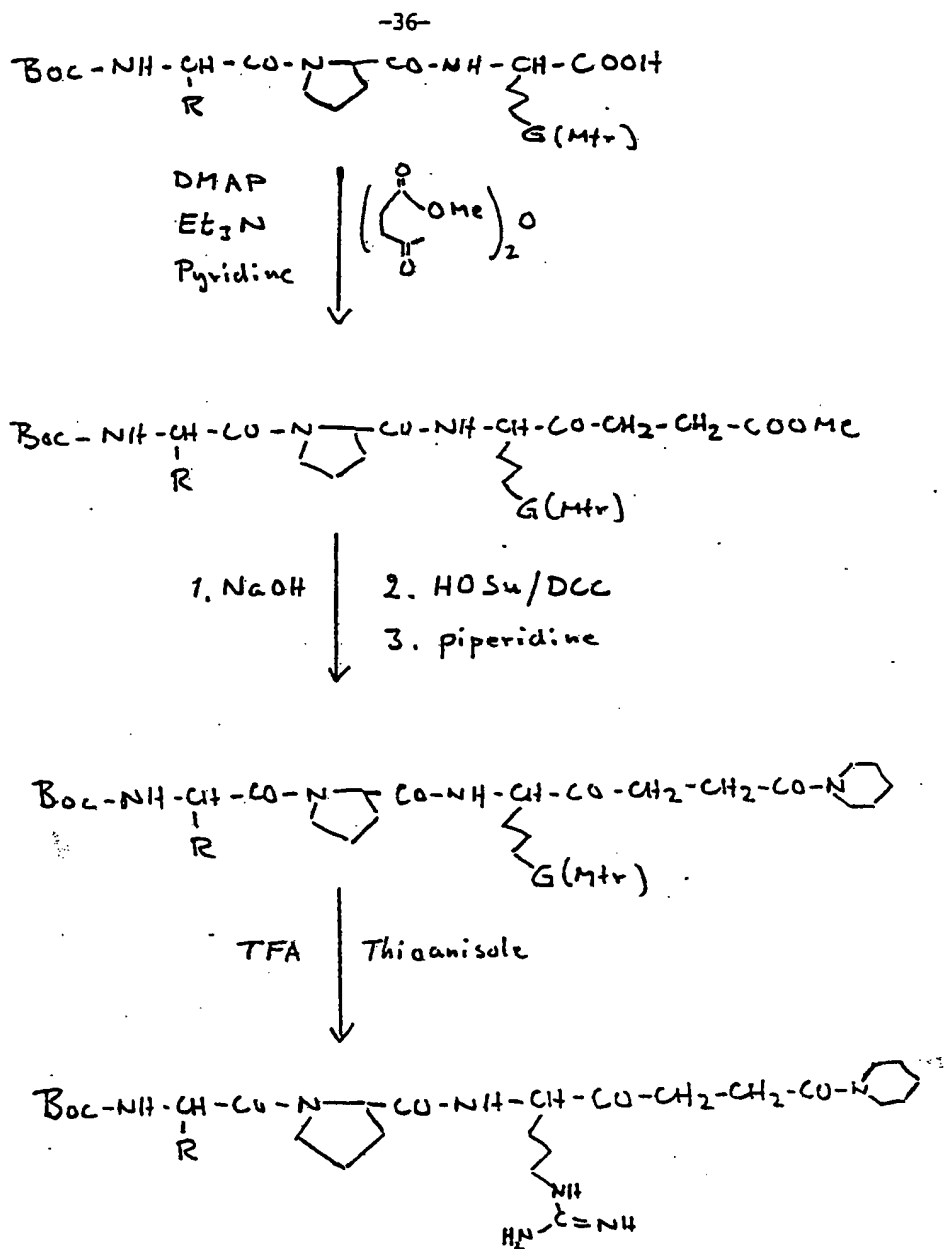 -36-
Boc-NH-CH-CO-N CO-NH-CH-COOH
R
G(Mtr)
DMAP
Et3N
Pyridine
( O OMe O )2 O
Boc-NH-CH-CO-N CO-NH-CH-CO-CH2-CH2-COOMe
R
G(Mtr)
1. NaOH 2. HOSu/DCC
3. piperidine
Boc-NH-CH-CO-N CO-NH-CH-CO-CH2-CH2-CO-N
R
G(Mtr)
TFA Thioanisole
Boc-NH-CH-CO-N CO-NH-CH-CO-CH2-CH2-CO-N
R
NH
H2N C=NH